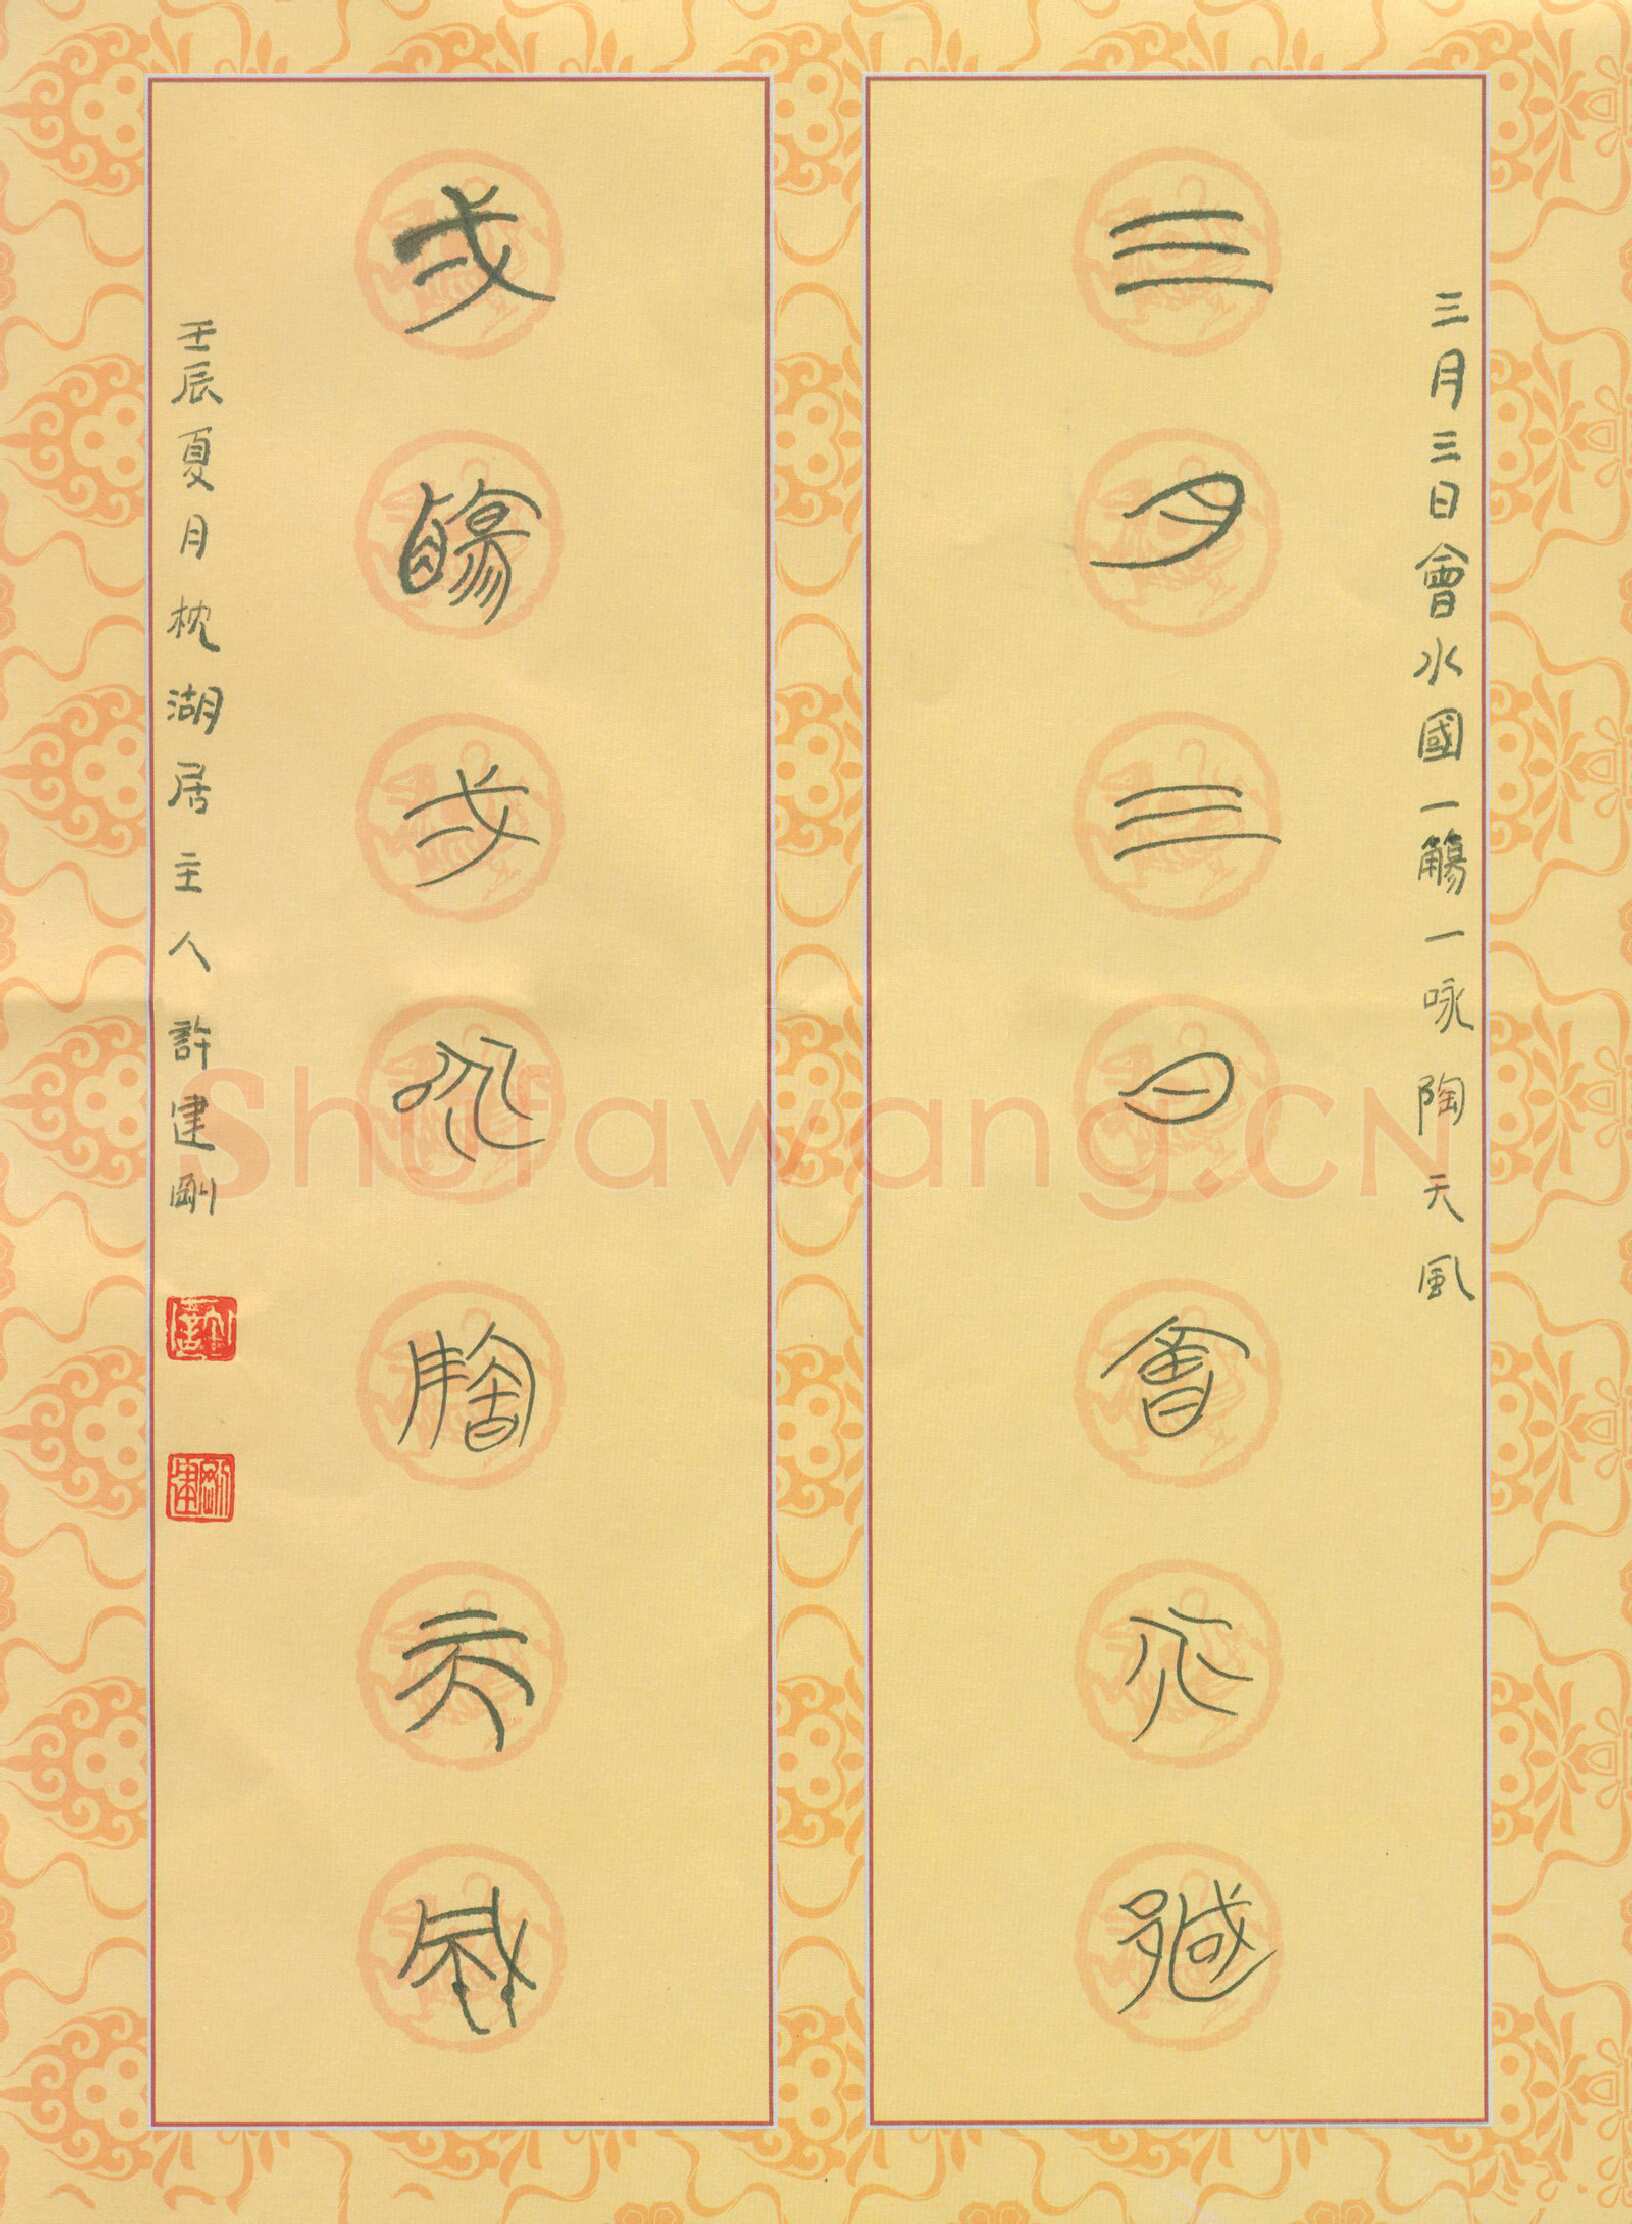 三月三日會水國一觴一咏陶天風
三月三日會水國
弌觴弌咏陶天風
壬辰夏月枕湖居主人許建剛
Shufawang.CN